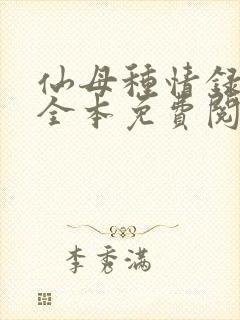 仙母種情録
全本免費閱
李秀满